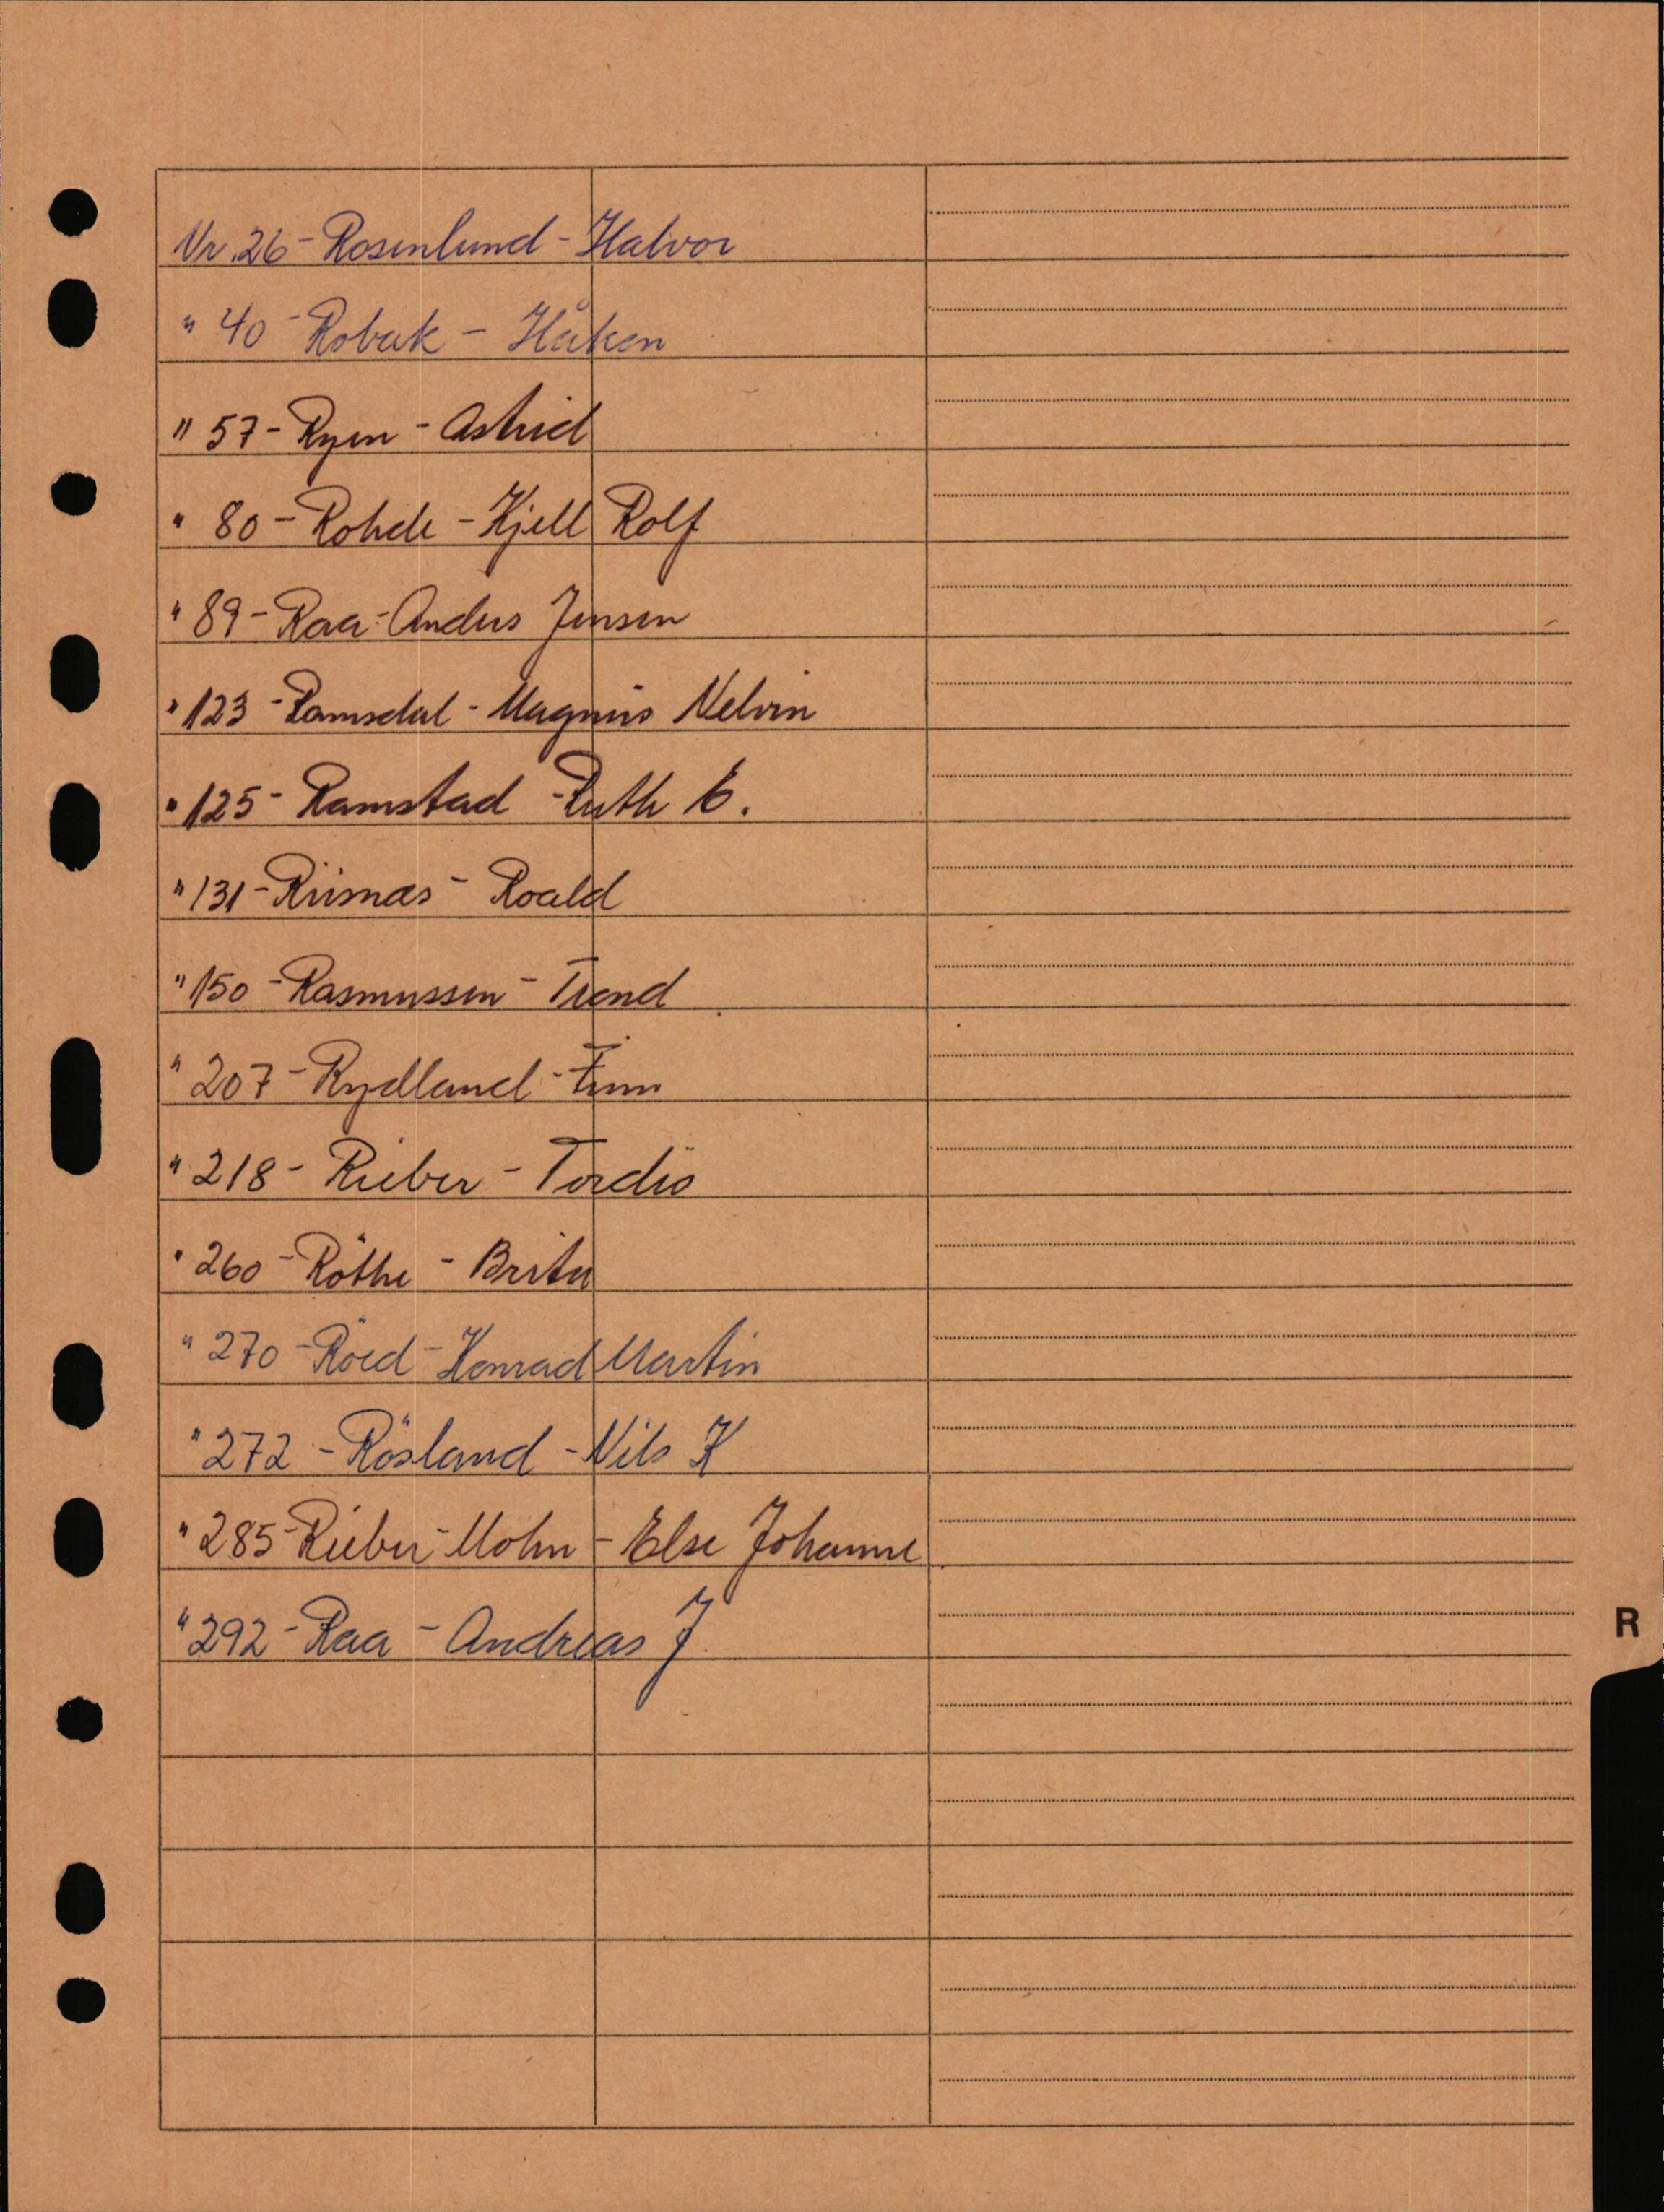 Nr. 26 - Rosenlund - Halvor
" 40 - Robak - Håken
" 57 - Ryen - Astrid
" 80 - Rohde - Kjell Rolf
" 89 - Raa - Anders Jensen
" 123 - Ramsdal - Magnus Melvin
" 125 - Ramstad - Ruth E.
" 131 - Riisnæs - Roald
" 150 - Rasmussen - Trond
" 207 - Rydland - Finn
" 218 - Rieber - Tordis
" 260 - Röthe - Brita
" 270 - Röed - Konrad Martin
" 272 - Rösland - Nils K
" 285 - Rieber-Mohn - Else Johanne
" 292 - Raa - Andreas J
R